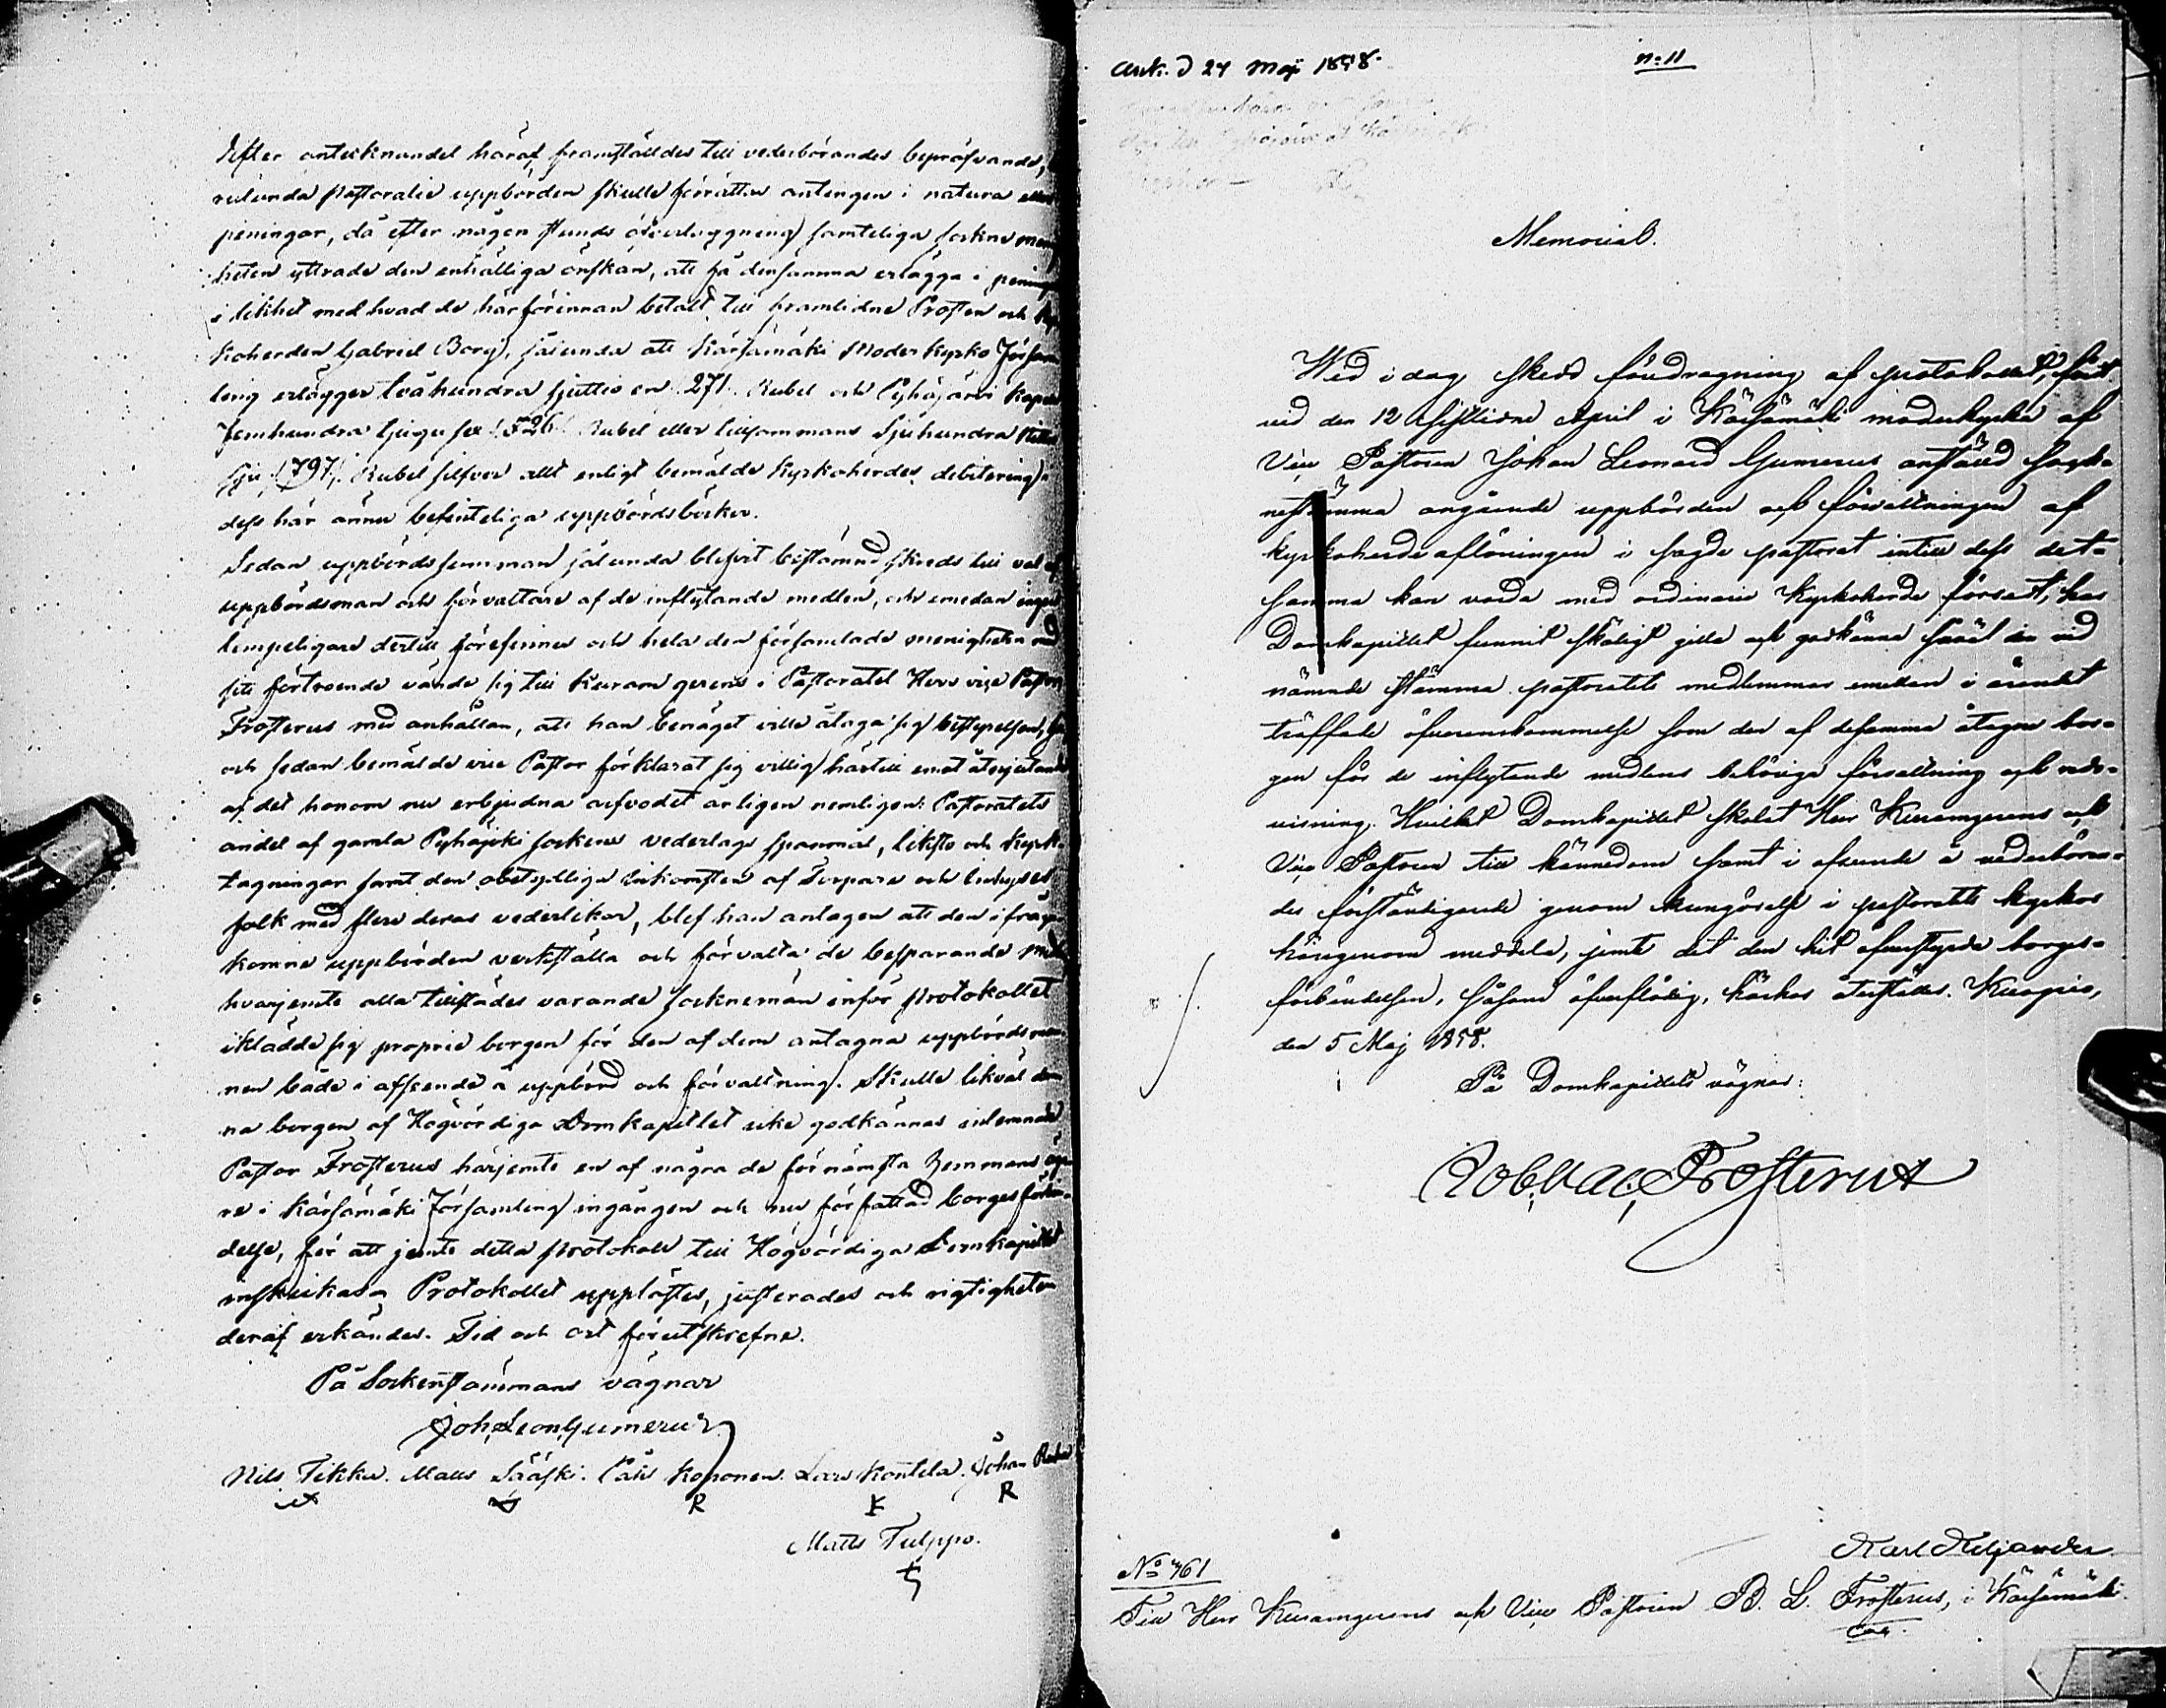 Efter antecknandet häraf framställdes till vederbörandes bepröfvande,
rulunda Pastoralie uppbörden skulle förrättas antingen i natura eller
peningar, då efter någon stunds öfverläggning samteliga sockne men
heten yttrade den enhälliga önskan, att få densamma erlägga i pening
i likhet med hvad de härförinnan betalt till framlidne Prosten och Kyr
koherden Gabriel Borg, sålunda att Kärsämäki Moderkyrko Försam
ling erlägger tvåhundra sjuttio en 271. Rubel och Pyhäjärvi Kapell
femhundra tjugu sex (526) Rubel eller tillsammans Sjuhundra nittio
sju (797) Rubel silfver allt enligt bemälde Kyrkoherdes debitering i
dess här ännu befinteliga uppbördsböcker.
Sedan uppbördssumman sålunda blifvit bestämd skreds till val af
uppbördsman och förvaltare af de inflytande medlen, och emedan ingen
lämpeligare dertill förefinnes och hela den församlade menigheten med
sitt förtroende vände sig till Kuram gerens i Pastoratet Herr vice Pastor
Frosterus med anhållan, att han benäget ville åtaga sig bestyrelsen,
och sedan bemälde vice Pastor förklarat sig villig härtill emot åtnjutande
af det honom nu erbjudna arfvodet årligen nemligen: Pastoratets
andel af gamla Pyhäjoki sockens vederlags spanmål, liksto och Kyrk-
tagningar samt den obetydliga inkomsten af Torpare och inhyses
folk med flere deras vederlikar, blef han antagen att den i fråga
komne uppbörden verkställa och förvalta de besparande medel
hvarjemte alla tillstädes varande socknemän inför protokollet
iklädde sig proprie borgen för den af dem antagna uppbördsman
nen både i afseende å uppbörd och förvaltning. Skulle likväl den
na borgen af Högvördiga Domkapitlet icke godkännas inlemnade
Pastor Frosterus härjemte en af några de förnämsta Hemmans äga
re i Kärsämäki Församling ingången och nu författad borgesförbin-
delse, för att jemte detta protokoll till Högvördiga Domkapitlet
inskickas. Protokollet upplästes, justerades och rigtigheten
deraf erkändes. Tid och ort förutskrefne.
På Sockenstämmans vägnar
Joh. Leon. Gumerus
Nils Tikka. Matts Sääski. Påhl Koponen. Lars Konttila. Johan
R K R
Matts Tulppo.
Ank. d 24 Maji 1858.
n:o 11
Memorial.
Wid i dag skedd föredragning af protokollet, fördt
vid den 12 sistlidne April i Kärsämäki moderkyrka af
Vice Pastoren Johan Leonard Gumerus anställd sock-
nestämma angående uppbörden och förvaltningen af
kyrkoherdeaflöningen i sagde pastorat intill dess det-
samma kan varda med ordinarie Kyrkoherde försedt, har
Domkapitlet funnit skäligt gilla och godkänna såväl en vid
nämnde stämma pastoratets medlemmar emellan i ärendet
träffade öfverenskommelse som den af desamma åtagne bor-
gen för de inflytande medlens behöriga förvaltning och redo-
visning. Hvilket Domkapitlet skolat Herr Kuramgerens och
Vice Pastoren till kännedom samt i afseende å vederböran-
des förständigande genom kungörelse i pastoratets kyrkor
härigenom meddela, jemte det den hit öfverstyrde borges-
förbindelsen, såsom öfverflödig, härhos återställes. Kuopio,
den 5 Maj 1858.
På Domkapitlets vägnar:
Rob. Val. Frosterus
Karl Kiljander.
No 761
Till Herr Kuramgerens och Vice Pastoren B. L. Frosterus, i Kärsämäki.